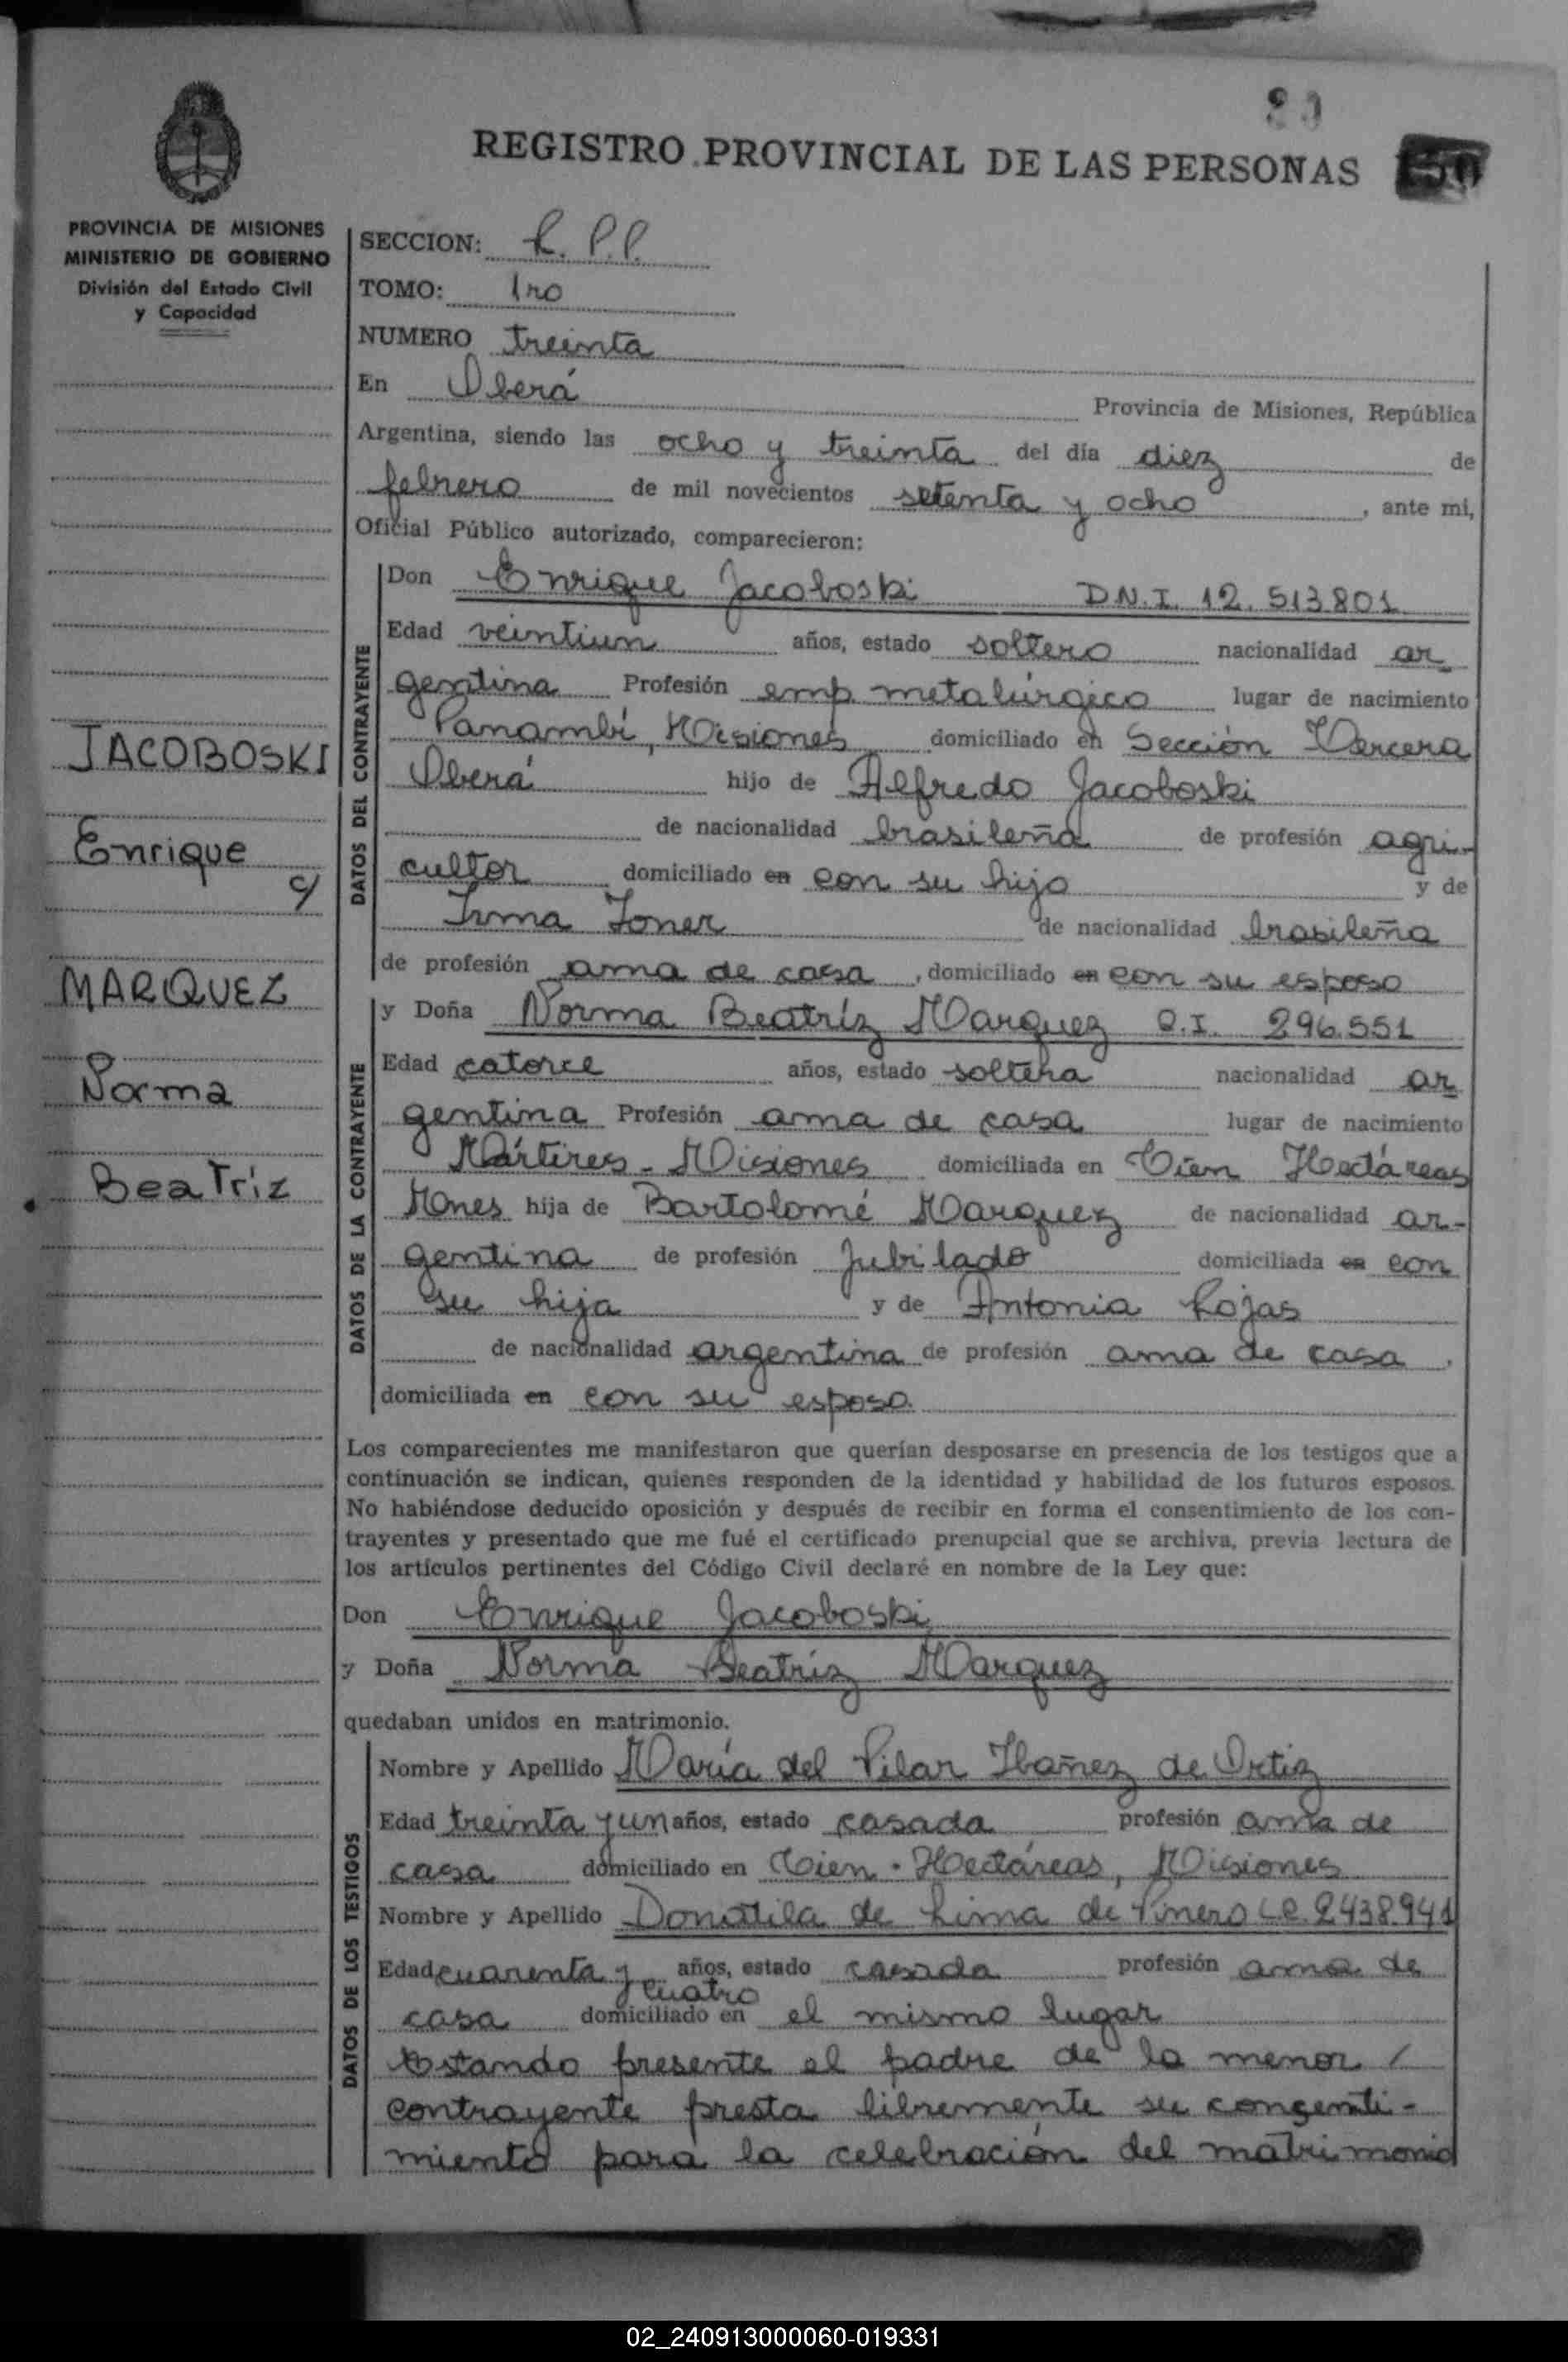 REGISTRO PROVINCIAL DE LAS PERSONAS
PROVINCIA DE MISIONES
MINISTERIO DE GOBIERNO
División del Estado Civil
y Capacidad
SECCION: R. P.P.
TOMO: 1ro
NUMERO treinta
En Oberá Provincia de Misiones, República
Argentina, siendo las ocho y treinta del día diez de
febrero de mil novecientos setenta y ocho, ante mi,
Oficial Público autorizado, comparecieron:
JACOBOSKI
Enrique
c/
MARQUEZ
Norma
Beatríz
DATOS DEL CONTRAYENTE
Don Enrique Jacoboski D.N.I. 12.513801
Edad veintiun años, estado soltero nacionalidad ar
gentina Profesión emp. metalúrgico lugar de nacimiento
Panambí, Misiones domiciliado en Sección Tercera
Oberá hijo de Alfredo Jacoboski
de nacionalidad brasileña de profesión agri-
cultor domiciliado en con su hijo y de
Irma Toner de nacionalidad brasileña
de profesión ama de casa, domiciliado en con su esposo
DATOS DE LA CONTRAYENTE
y Doña Norma Beatríz Marquez C.I. 296.551
Edad catorce años, estado soltera nacionalidad ar
gentina Profesión ama de casa lugar de nacimiento
Mártires - Misiones domiciliada en Cien Hectáreas
Mnes hija de Bartolomé Marquez de nacionalidad ar-
gentina de profesión Jubilado domiciliada en con
su hija y de Antonia Rojas
de nacionalidad argentina de profesión ama de casa,
domiciliada en con su esposo
Los comparecientes me manifestaron que querían desposarse en presencia de los testigos que a
continuación se indican, quienes responden de la identidad y habilidad de los futuros esposos.
No habiéndose deducido oposición y después de recibir en forma el consentimiento de los con-
trayentes y presentado que me fué el certificado prenupcial que se archiva, previa lectura de
los artículos pertinentes del Código Civil declaré en nombre de la Ley que:
Don Enrique Jacoboski
y Doña Norma Beatríz Marquez
quedaban unidos en matrimonio.
DATOS DE LOS TESTIGOS
Nombre y Apellido María del Pilar Ibañez de Ortiz
Edad treinta y un años, estado casada profesión ama de
casa domiciliado en Cien - Hectáreas, Misiones
Nombre y Apellido Donatila de Lima de Pinero L.C. 2438.941
Edad cuarenta y cuatro años, estado casada profesión ama de
casa domiciliado en el mismo lugar
Estando presente el padre de la menor /
contrayente presta libremente su consenti-
miento para la celebración del matrimonio
02_240913000060-019331